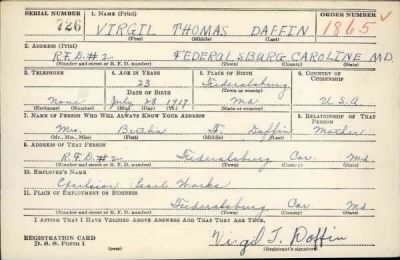 SERIAL NUMBER 1. NAME (Print) ORDER NUMBER
726 VIRGIL THOMAS DAFFIN 1865 ✓
(First) (Middle) (Last)
2. ADDRESS (Print)
R.F.D. #2 FEDERALSBURG CAROLINE MD.
(Number and street or R. F. D. number) (Town) (County) (State)
3. TELEPHONE 4. AGE IN YEARS 5. PLACE OF BIRTH 6. COUNTRY OF CITIZENSHIP
23 Federalsburg
DATE OF BIRTH (Town or county)
None July 28 1917 Md U.S.A
(Exchange) (Number) (Mo.) (Day) (Yr.) (State or country)
7. NAME OF PERSON WHO WILL ALWAYS KNOW YOUR ADDRESS 8. RELATIONSHIP OF THAT PERSON
Mrs. Daffin Mother
(Mr., Mrs., Miss) (First) (Middle) (Last)
9. ADDRESS OF THAT PERSON
R.F.D. #2 Federalsburg Car. Md
(Number and street or R. F. D. number) (Town) (County) (State)
10. EMPLOYER'S NAME
Pearl Works
11. PLACE OF EMPLOYMENT OR BUSINESS
Federalsburg Car Md
(Number and street or R. F. D. number) (Town) (County) (State)
I AFFIRM THAT I HAVE VERIFIED ABOVE ANSWERS AND THAT THEY ARE TRUE.
REGISTRATION CARD
D. S. S. Form 1 (over) Virgil T. Daffin
(Registrant's signature)